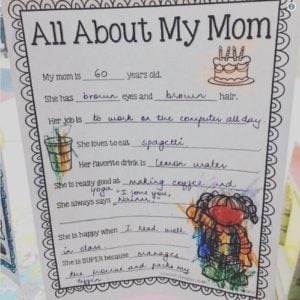 All About My Mom
My mom is 60 years old.
She has brown eyes and brown hair.
Her job is to work on the computer all day
She loves to eat spagetti
Her favorite drink is lemon water
She is really good at making coffee and
yoga
She always says "I love you,
Naini."
She is happy when I read well
in class.
She is SUPER because manages
the house and packs my
tiffin